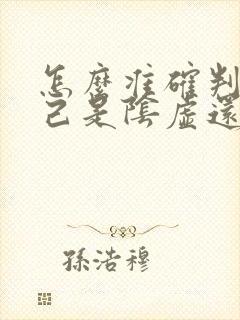 怎麼准確判
己是陰虛還
孫浩穆